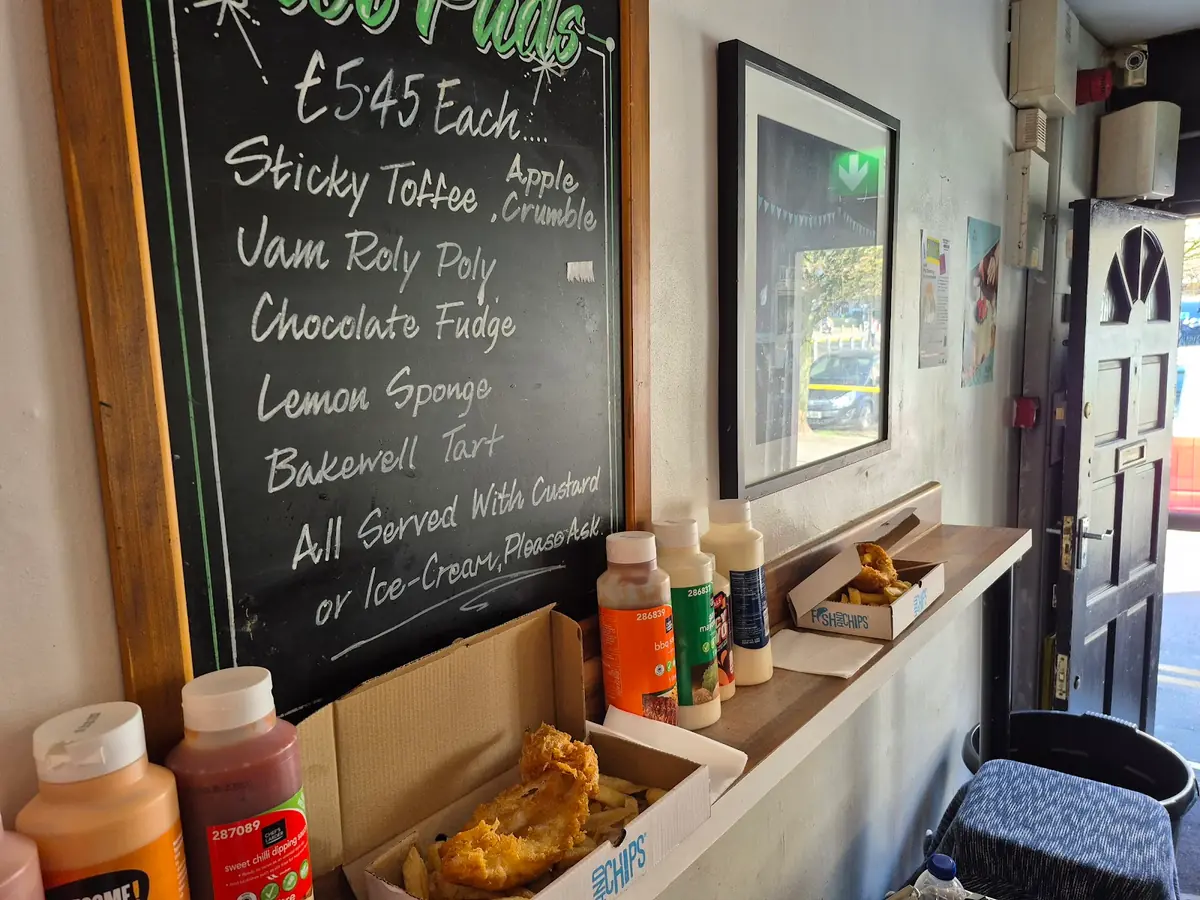 Puds
£5.45 Each....
Sticky Toffee, Apple Crumble
Jam Roly Poly
Chocolate Fudge
Lemon Sponge
Bakewell Tart
All Served With Custard
or Ice-Cream, Please Ask.
286839
bbq
286837
FISH AND CHIPS
287089
CHEF'S LARDER
sweet chilli dipping
AND CHIPS